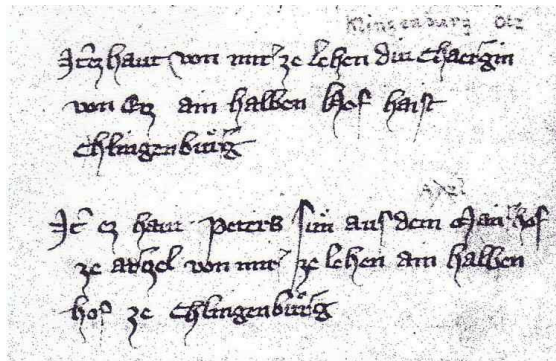 Klingenburg Otz
It ez haut von mir ze lehen diu Chaergin
von Etz ain halben hof haist
Chlingenbuͤrg
Axel
It ez haut Peters sun aus dem Mairhof
ze achzel von mir ze lehen ain halben
hof ze Chlingenbuͤrg